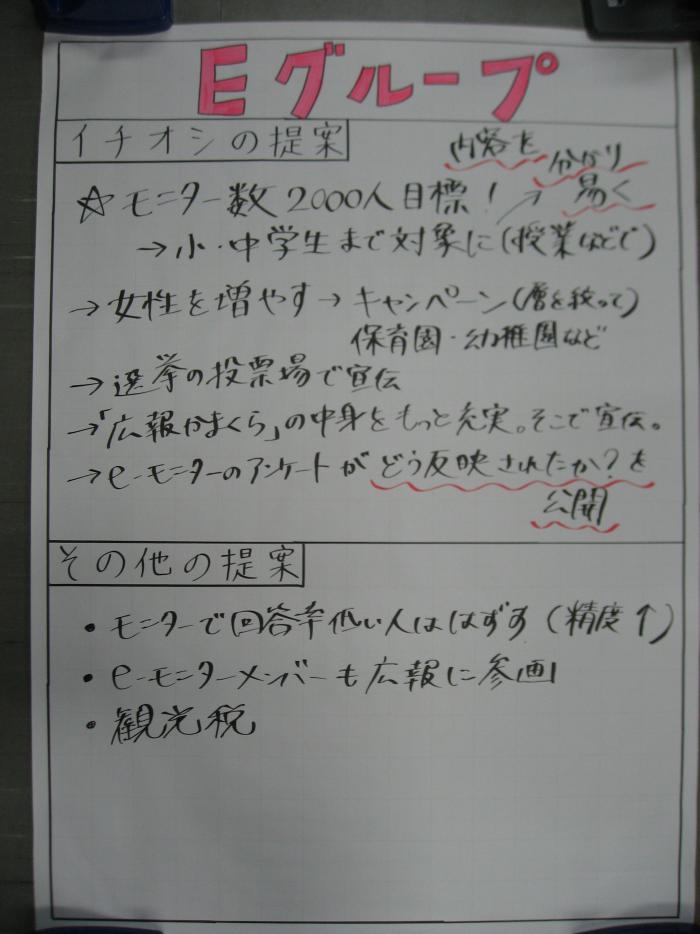 Eグループ
イチオシの提案
内容を分かり
易く
☆モニター数2000人目標!
→小・中学生まで対象に(授業などで)
→女性を増やす→キャンペーン(層を絞って)
保育園・幼稚園など
→選挙の投票場で宣伝
→「広報かまくら」の中身をもっと充実。そこで宣伝。
→e-モニターのアンケートがどう反映されたか?を
公開
その他の提案
・モニターで回答率低い人ははずす(精度↑)
・e-モニターメンバーも広報に参画
・観光税